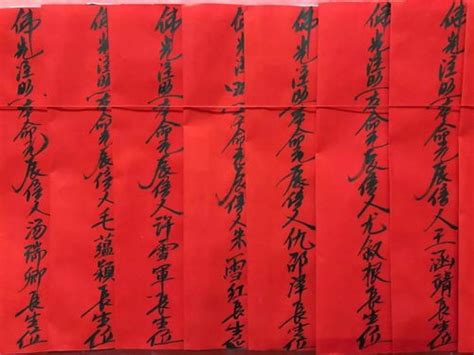 佛光注照本命元辰信人王涵晴長生位
佛光注照本命元辰信人尤叙根長生位
佛光注照本命元辰信人仇邵泽長生位
佛光注照本命元辰信人朱雪红長生位
佛光注照本命元辰信人许雪軍長生位
佛光注照本命元辰信人毛蕴颖長生位
佛光注照本命元辰信人汤瑞卿長生位